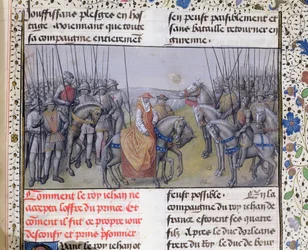 iouffissans plesges en hos
tage. Moiennant que toute
sa compaignie entierement
sen peust paisiblement et
sans bataille retourner en
guienne.
Comment le roy iehan ne
accepta loffre du prince et
coment il fut ce propre iour
desconfy et prins prisonnier
Quant le roy iehan ot
feust possible. En la
compaignie du roy iehan de
france estoient ses quatre
filz. Apres le duc dorleans
frere du Roy. le duc de bour